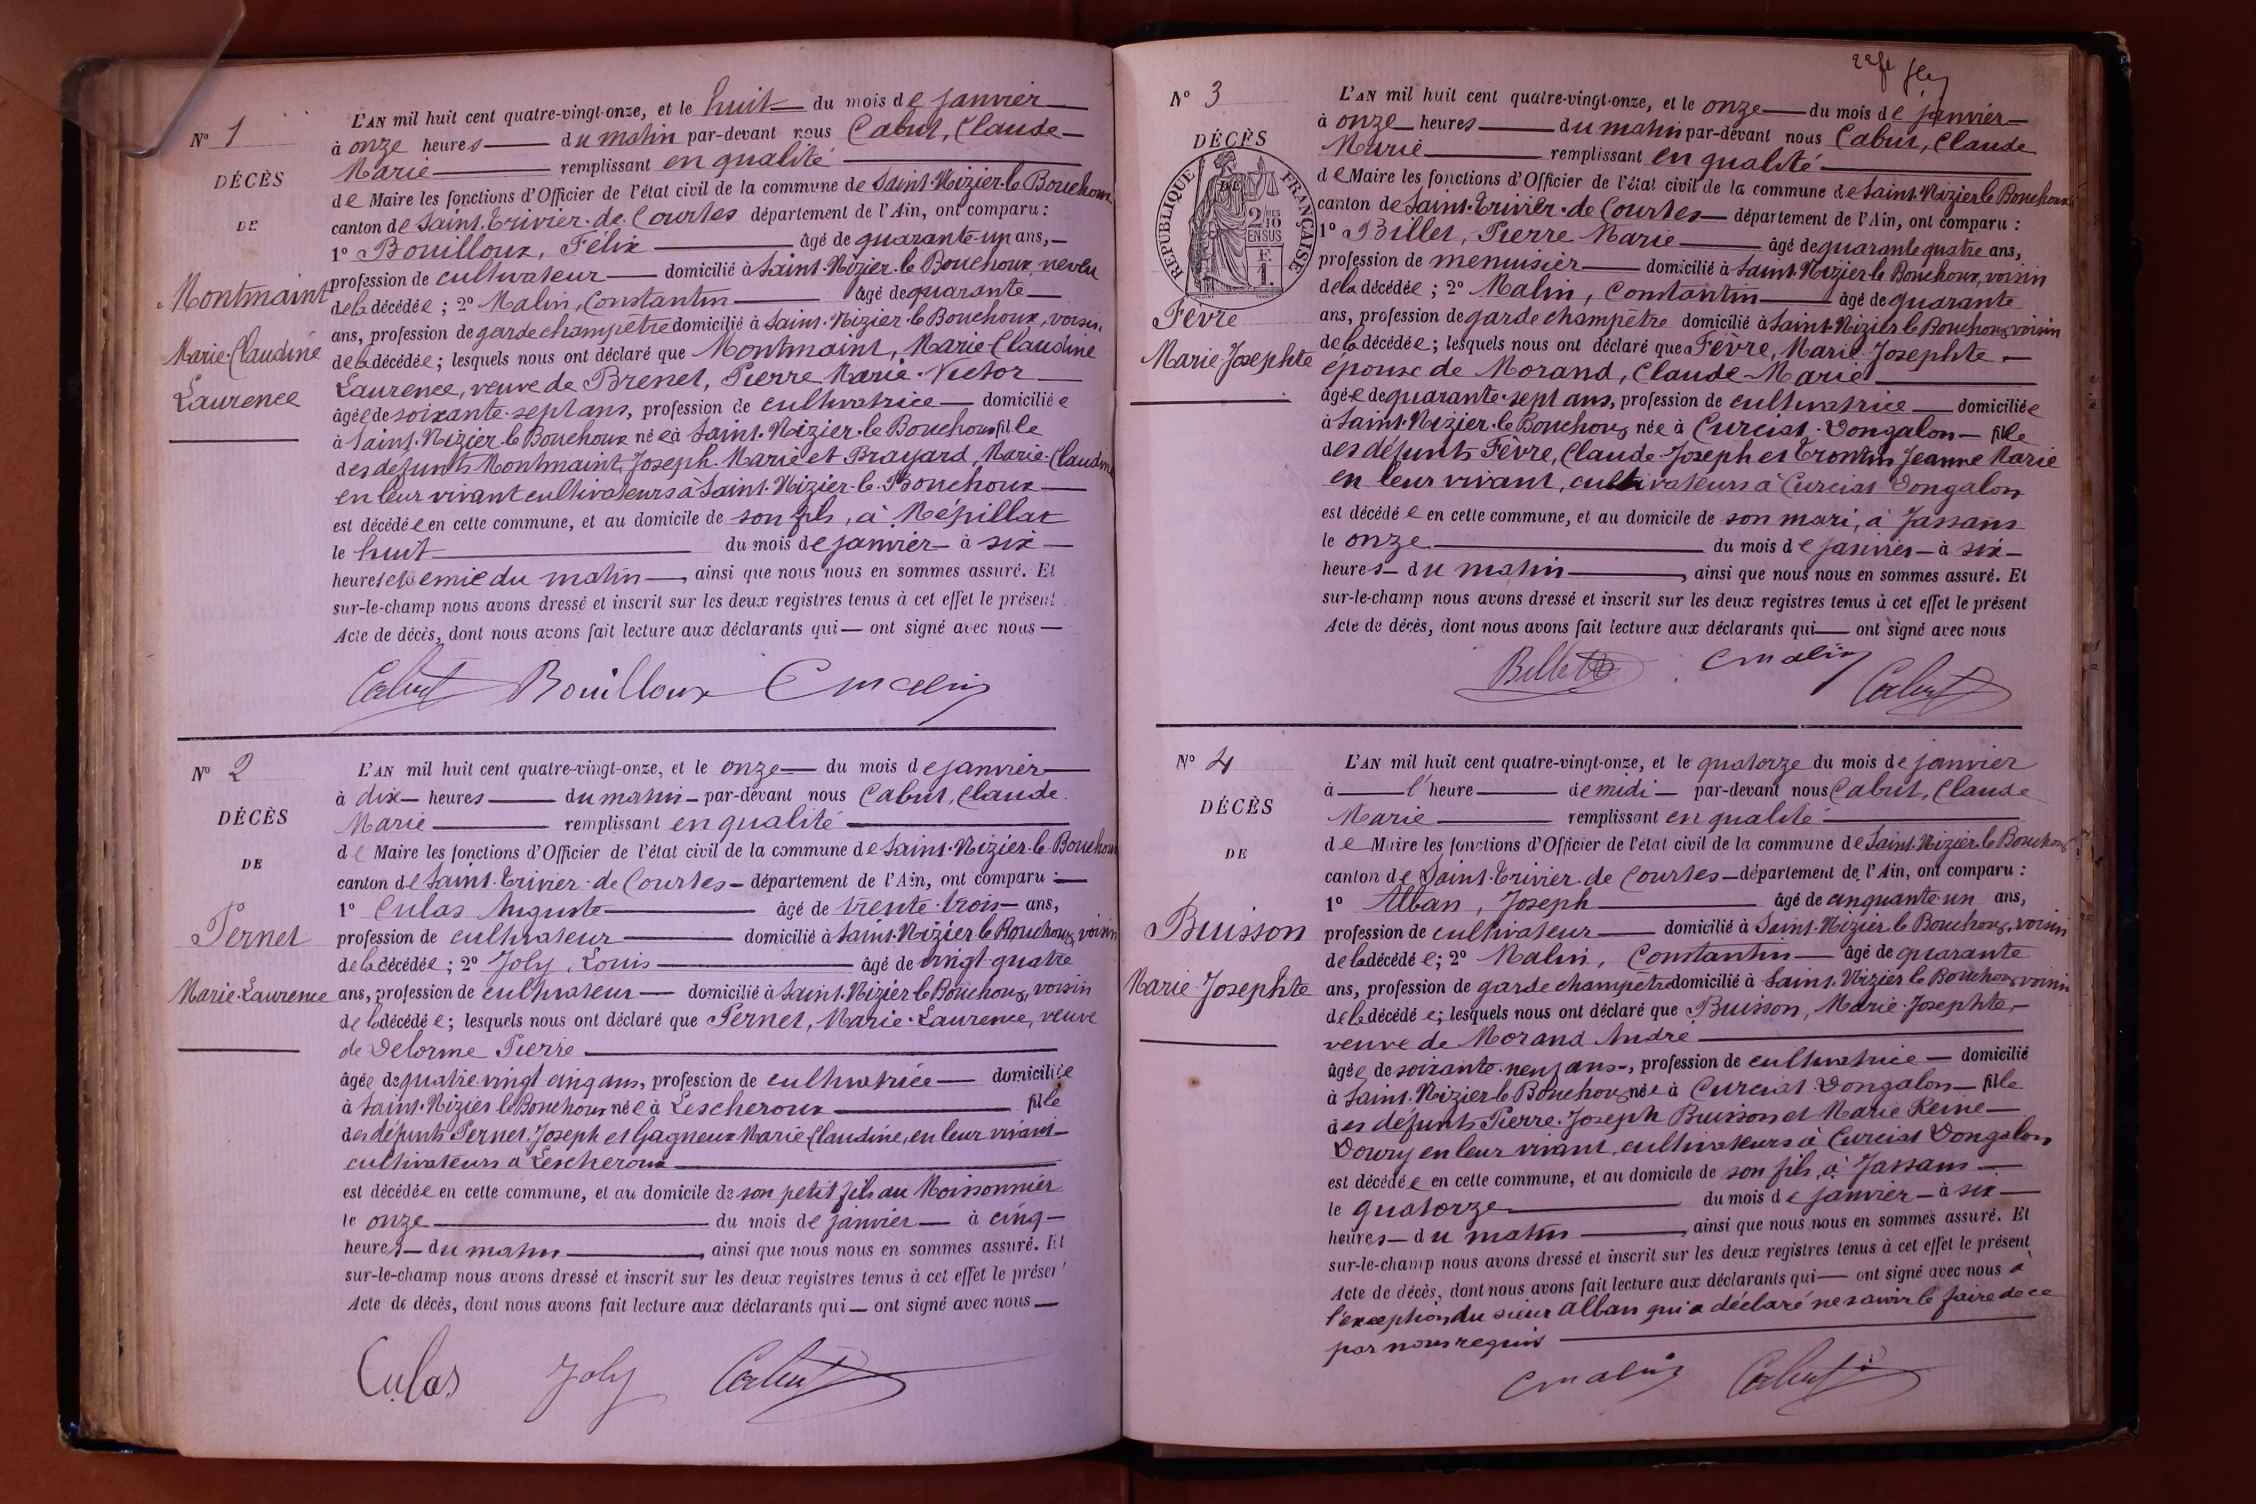 Nº 1
DÉCÈS
DE
Montmaint
Marie-Claudine
Laurence
L'AN mil huit cent quatre-vingt-onze, et le huit du mois de janvier
à onze heures du matin par-devant nous Cabut, Claude
Marie remplissant en qualité
de Maire les fonctions d'Officier de l'état civil de la commune de Saint-Nizier-le-Bouchoux
canton de Saint-Trivier-de-Courtes département de l'Ain, ont comparu :
1º Bouilloux, Félix âgé de quarante-un ans,
profession de cultivateur domicilié à Saint-Nizier-le-Bouchoux, neveu
de la décédée ; 2º Malin, Constantin âgé de quarante
ans, profession de garde champêtre domicilié à Saint-Nizier-le-Bouchoux, voisin
de la décédée ; lesquels nous ont déclaré que Montmaint, Marie-Claudine
Laurence, veuve de Brenet, Pierre Marie-Victor
âgée de soixante-sept ans, profession de cultivatrice domiciliée
à Saint-Nizier-le-Bouchoux née à Saint-Nizier-le-Bouchoux fille
des défunts Montmaint, Joseph-Marie et Brayard, Marie-Claudine
en leur vivant cultivateurs à Saint-Nizier-le-Bouchoux
est décédée en cette commune, et au domicile de son fils, à Mépillat
le huit du mois de janvier à six
heures et demie du matin, ainsi que nous nous en sommes assuré. Et
sur-le-champ nous avons dressé et inscrit sur les deux registres tenus à cet effet le présent
Acte de décès, dont nous avons fait lecture aux déclarants qui ont signé avec nous
Cabut Bouilloux C Malin
Nº 2
DÉCÈS
DE
Pernet
Marie-Laurence
L'AN mil huit cent quatre-vingt-onze, et le onze du mois de janvier
à dix heures du matin par-devant nous Cabut, Claude
Marie remplissant en qualité
de Maire les fonctions d'Officier de l'état civil de la commune de Saint-Nizier-le-Bouchoux
canton de Saint-Trivier-de-Courtes département de l'Ain, ont comparu :
1º Culas Auguste âgé de trente-trois ans,
profession de cultivateur domicilié à Saint-Nizier le Bouchoux, voisin
de la décédée ; 2º Joly, Louis âgé de vingt-quatre
ans, profession de cultivateur domicilié à Saint-Nizier le Bouchoux, voisin
de la décédée ; lesquels nous ont déclaré que Pernet, Marie-Laurence, veuve
de Delorme Pierre
âgée de quatre-vingt cinq ans, profession de cultivatrice domiciliée
à Saint-Nizier le Bouchoux née à Lescheroux fille
des défunts Pernet Joseph et Gagneux Marie Claudine, en leur vivant
cultivateurs à Lescheroux
est décédée en cette commune, et au domicile de son petit fils au Moissonnier
le onze du mois de janvier à cinq
heures du matin, ainsi que nous nous en sommes assuré. Et
sur-le-champ nous avons dressé et inscrit sur les deux registres tenus à cet effet le présent
Acte de décès, dont nous avons fait lecture aux déclarants qui ont signé avec nous
Culas Joly Cabut
Nº 3
DÉCÈS
DE
RÉPUBLIQUE FRANÇAISE
2/10 EN SUS
F. 1.
Fèvre
Marie-Josephte
L'AN mil huit cent quatre-vingt-onze, et le onze du mois de janvier
à onze heures du matin par-devant nous Cabut, Claude
Marie remplissant en qualité
de Maire les fonctions d'Officier de l'état civil de la commune de Saint-Nizier le Bouchoux
canton de Saint-Trivier-de-Courtes département de l'Ain, ont comparu :
1º Billet, Pierre Marie âgé de quarante quatre ans,
profession de menuisier domicilié à Saint-Nizier le Bouchoux, voisin
de la décédée ; 2º Malin, Constantin âgé de quarante
ans, profession de garde champêtre domicilié à Saint-Nizier le Bouchoux voisin
de la décédée ; lesquels nous ont déclaré que Fèvre, Marie-Josephte
épouse de Morand, Claude-Marie
âgée de quarante-sept ans, profession de cultivatrice domiciliée
à Saint-Nizier-le-Bouchoux née à Curciat-Dongalon fille
des défunts Fèvre, Claude-Joseph et Jeanne Marie
en leur vivant, cultivateurs à Curciat Dongalon
est décédée en cette commune, et au domicile de son mari, à Jassans
le onze du mois de janvier à six
heures du matin, ainsi que nous nous en sommes assuré. Et
sur-le-champ nous avons dressé et inscrit sur les deux registres tenus à cet effet le présent
Acte de décès, dont nous avons fait lecture aux déclarants qui ont signé avec nous
Billet C Malin Cabut
Nº 4
DÉCÈS
DE
Buisson
Marie-Josephte
L'AN mil huit cent quatre-vingt-onze, et le quatorze du mois de janvier
à l'heure de midi par-devant nous Cabut, Claude
Marie remplissant en qualité
de Maire les fonctions d'Officier de l'état civil de la commune de Saint-Nizier-le-Bouchoux
canton de Saint-Trivier de Courtes département de l'Ain, ont comparu :
1º Alban, Joseph âgé de cinquante un ans,
profession de cultivateur domicilié à Saint-Nizier le Bouchoux, voisin
de la décédée ; 2º Malin, Constantin âgé de quarante
ans, profession de garde champêtre domicilié à Saint-Nizier le Bouchoux voisin
de la décédée ; lesquels nous ont déclaré que Buisson, Marie-Josephte,
veuve de Morand André
âgée de soixante-neuf ans, profession de cultivatrice domicilié
à Saint-Nizier-le-Bouchoux née à Curciat Dongalon fille
des défunts Pierre-Joseph Buisson et Marie Reine
Doury en leur vivant, cultivateurs à Curciat Dongalon
est décédée en cette commune, et au domicile de son fils, à Jassans
le quatorze du mois de janvier à six
heures du matin, ainsi que nous nous en sommes assuré. Et
sur-le-champ nous avons dressé et inscrit sur les deux registres tenus à cet effet le présent
Acte de décès, dont nous avons fait lecture aux déclarants qui ont signé avec nous à
l'exception du sieur Alban qui a déclaré ne savoir le faire de ce
par nous requis
C Malin Cabut